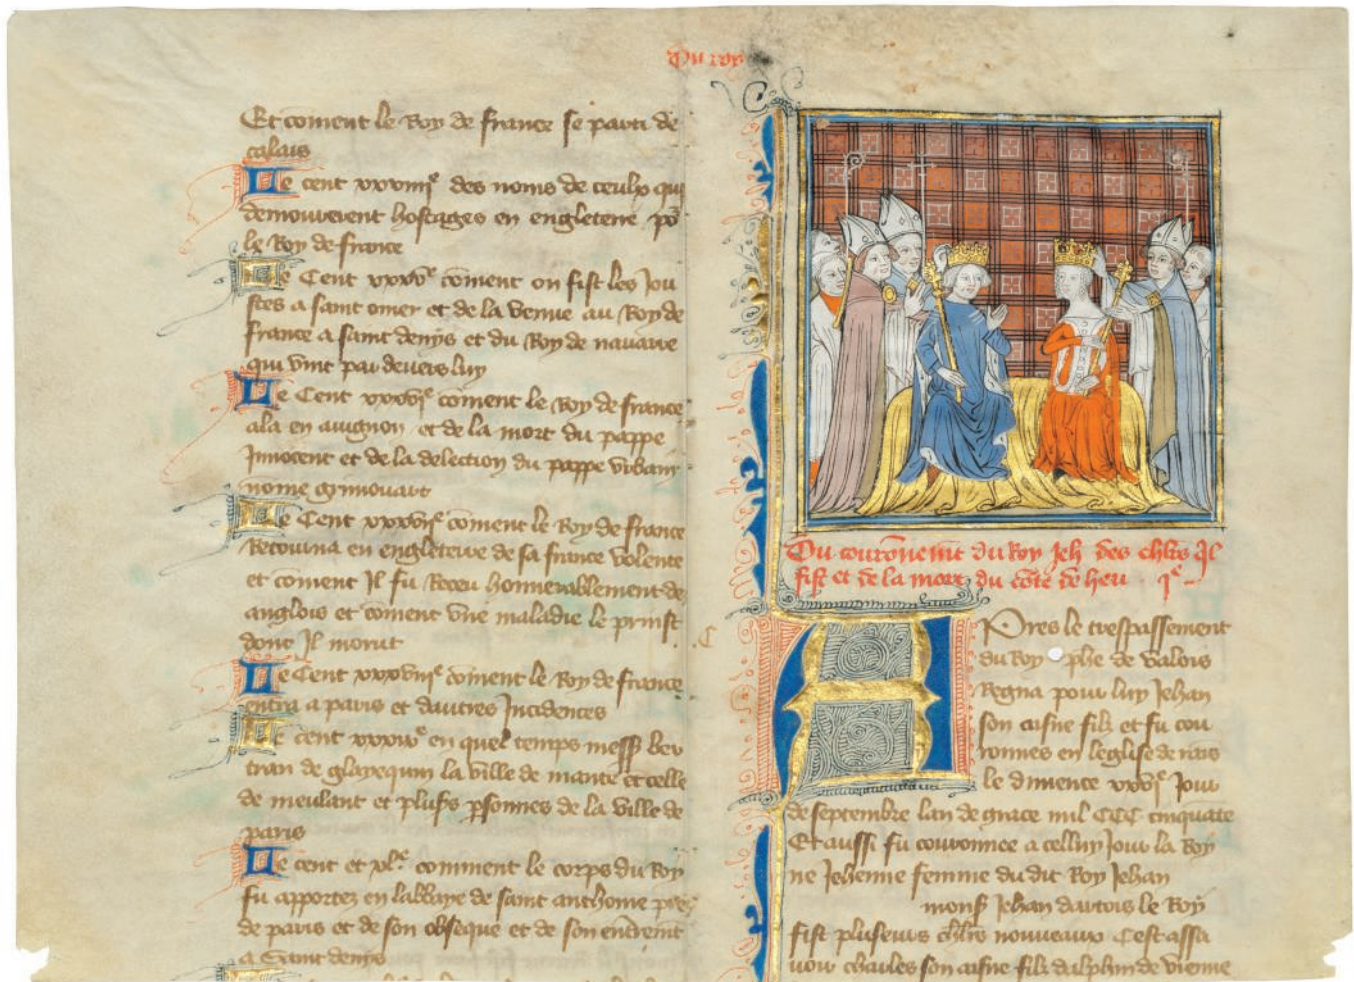 Du roy
Et coment le Roy de france se parti de
calais
Le cent xxxiiiie des noms de ceulx qui
demourerent hostages en engleterre po
le Roy de france
Le Cent xxxve coment on fist les Jou
stes a saint omer et de la venue au Roy de
france a saint denys et du Roy de navarre
qui vint par devers luy
Le Cent xxxvie coment le Roy de france
ala en auignon et de la mort du pappe
Innocent et de la delection du pappe vrbain
nome grimouart
Le Cent xxxviie coment le Roy de france
Retourna en engleterre de sa france volente
et coment Il fu Receu honnerablement des
anglois et coment vne maladie le prinst
dont Il morut
Le Cent xxxviiie coment le Roy de france
entra a paris et dautres Incidences
Le cent xxxixe en quel temps mess ber
tran de glayequin la ville de mante et celle
de meulant et pluss psonnes de la ville de
paris
Le cent et xle comment le corps du Roy
fu apportez en labbaye de saint anthoine pres
de paris et de son obseque et de son enterrent
a Saint denys
Du couronnemt du Roy Jeh des chlrs Il
fist et de la mort du cote de heu ie
Apres le trespassement
du Roy phe de valois
Regna pour luy Jehan
son aisne filz et fu cou
ronnes en leglise de rains
le dimence xxvie jour
de septembre lan de grace mil CCC cinquate
Et aussi fu couronnee a celluy Jour la Roy
ne Jehenne femme du dit Roy Jehan
mons Jehan dartois le Roy
fist pluseurs chlrs nouueaux Cest assa
uoir charles son aisne filz dalphin de vienne